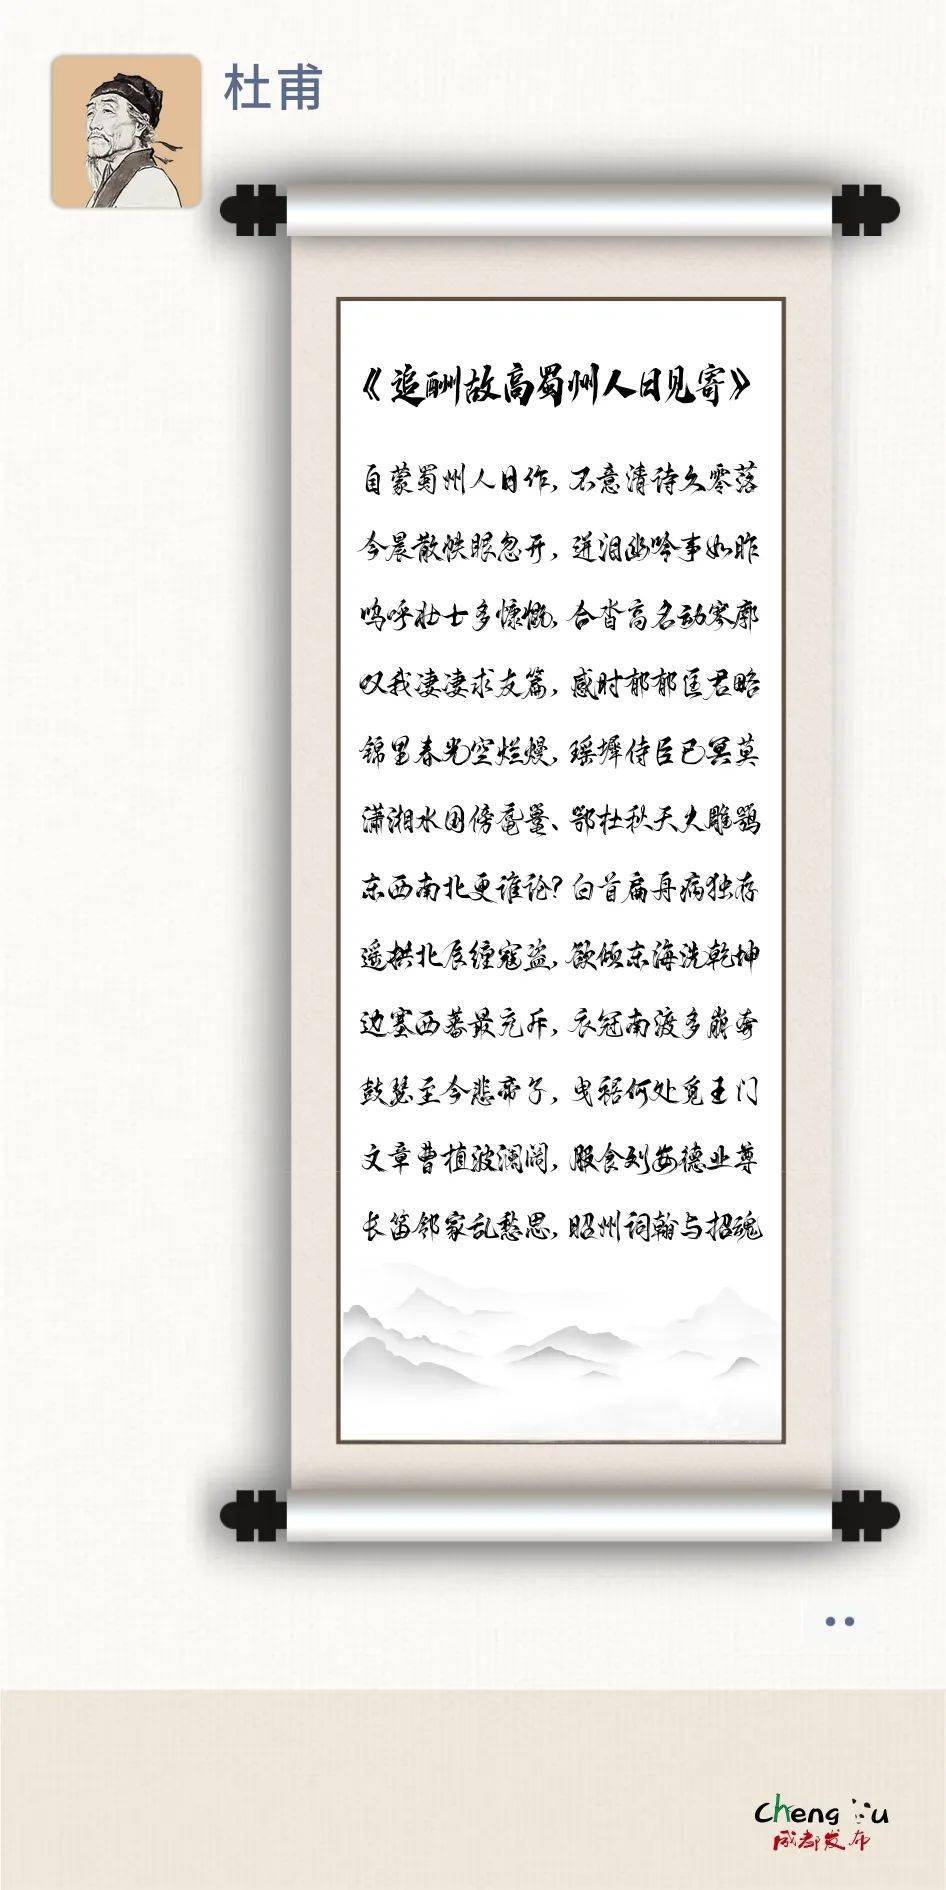 杜甫
《追酬故高蜀州人日见寄》
自蒙蜀州人日作，不意清诗久零落
今晨散帙眼忽开，迸泪幽吟事如昨
呜呼壮士多慷慨，合沓高名动寥廓
叹我凄凄求友篇，感时郁郁匡君略
锦里春光空烂熳，瑶墀侍臣已冥莫
潇湘水国傍鼋鼍、鄠杜秋天失雕鹗
东西南北更谁论？白首扁舟病独存
遥拱北辰缠寇盗，欲倾东海洗乾坤
边塞西蕃最充斥，衣冠南渡多崩奔
鼓瑟至今悲帝子，曳裾何处觅王门
文章曹植波澜阔，服食刘安德业尊
长笛邻家乱愁思，昭州词翰与招魂
ChengDu
成都发布